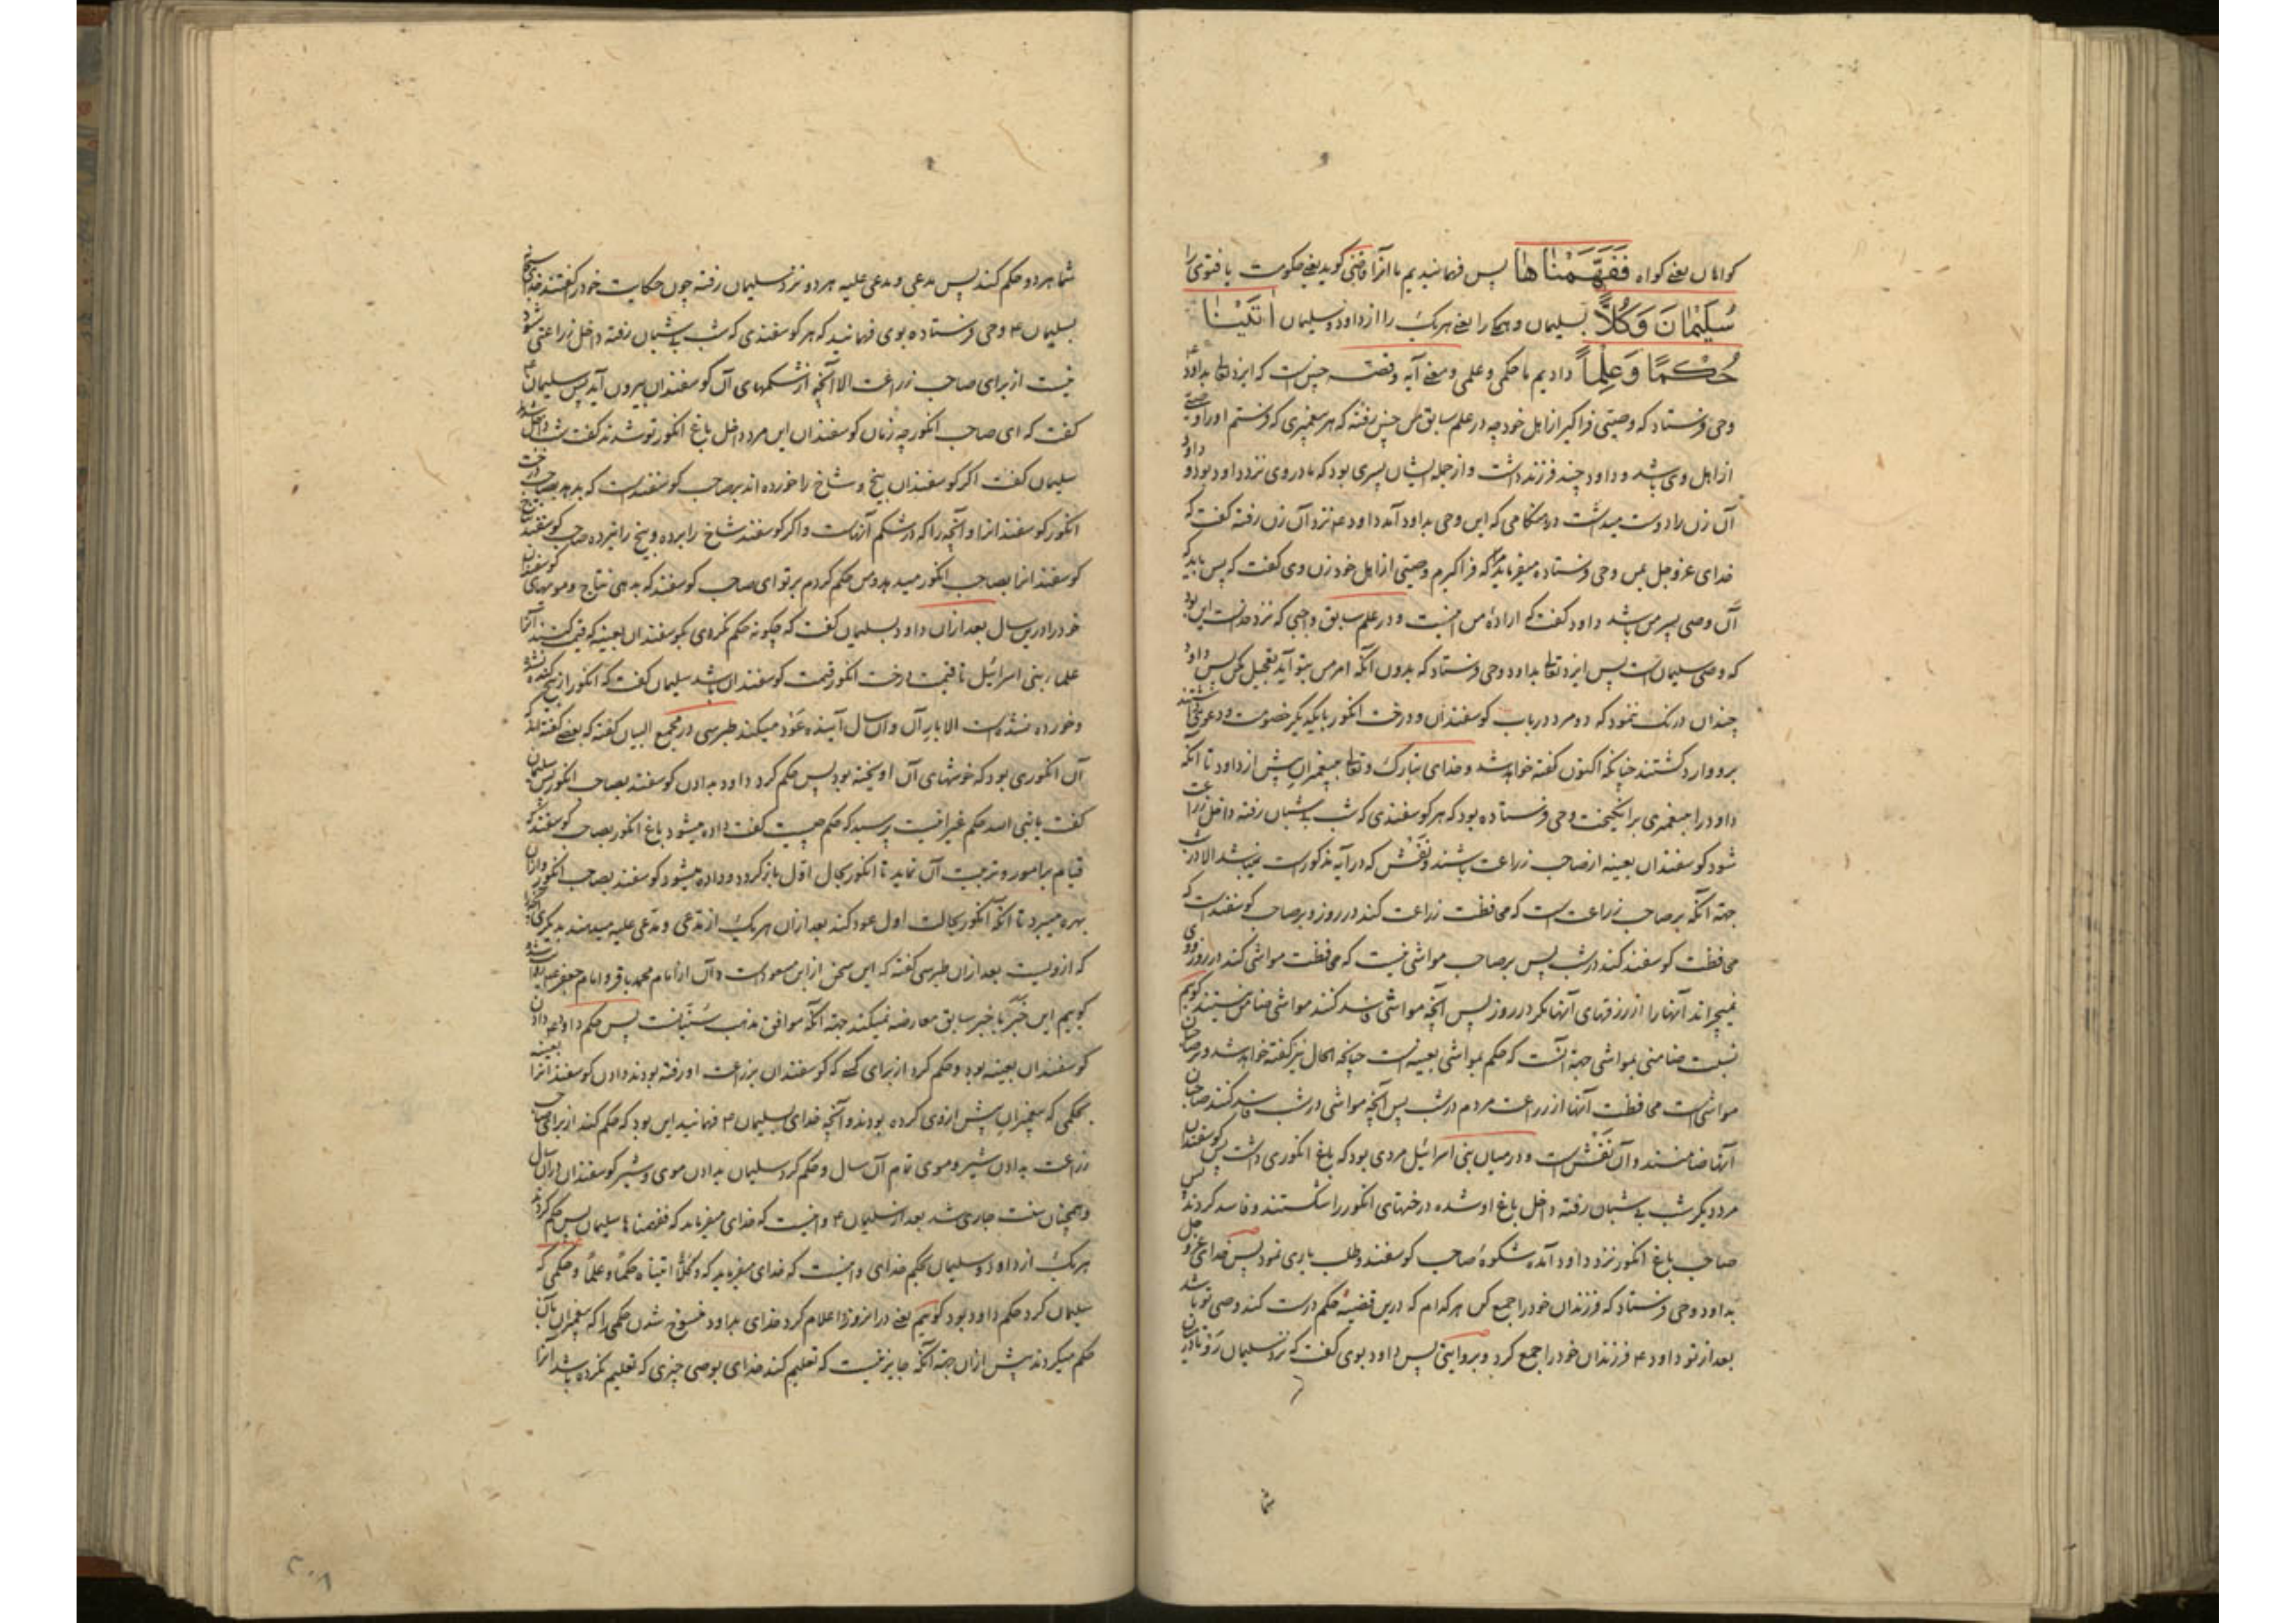 کواهان یعنی کواه فَفَهَّمْنَاهَا پس فهمانیدیم ما انرا قاضی کوید یعنی حکومت یا فتوی را
سُلَیْمٰانَ وَکُلّاً بسلیمان و همکی را یعنی هر یک را از داود و سلیمان اٰتَیْنٰا
حُکْمًا وَعِلْماً دادیم ما حکمی و علمی و معنی آیه و قصه چنین است که ایزد تعالی بداود ع
وحی فرستاد که وصیتی فراکیر از اهل خود چه در علم سابق من چنین رفته که هر پیغمبری که فرستم او را وصیتی
از اهل وی باشد و داود چند فرزند داشت و از جمله ایشان پسری بود که مادر وی نزد داود بود و داود
آن زن را دوست میداشت در هنکامی که این وحی بداود آمد داود ع نزد آن زن رفته کفت که
خدای عزوجل بمن وحی فرستاده میفرماید که فراکیرم وصیتی از اهل خود زن وی کفت که پس باید که
آن وصی پسر من باشد داود کفت که ارادهٔ من اینست و در علم سابق واجبی که نزد خداست این بود
که وصی سلیمان است پس ایزد تعالی بداود وحی فرستاد که بدون آنکه امر من بتو آید تعجیل مکن پس داود
چندان درنک ننمود که دو مرد در باب کوسفندان و درخت انکور با یکدیکر خصومت و دعوی داشتند
برو وارد کشتند چنانکه اکنون کفته خواهد شد و خدای تبارک و تعالی پیغمبران پیش از داود تا آنکه
داود را به پیغمبری برانکیخت وحی فرستاده بود که هر کوسفندی که شب بی شبان رفته داخل زراعت
شود کوسفندان بعینه از صاحب زراعت باشند و نَفَش که در آیه مذکور است نمیباشد الا در شب
جهة آنکه بر صاحب زراعت است که محافظت زراعت کند در روز و بر صاحب کوسفند است که
محافظت کوسفند کند در شب پس بر صاحب مواشی نیست که محافظت مواشی کند در روز و وی
نمیچراند آنها را از رزقهای آنها مکر در روز پس آنچه مواشی فاسد کنند مواشی ضامن نیستند کویم
نسبت ضامنی بمواشی جهة آنست که حکم بمواشی بعینه است چنانچه الحال نیز کفته خواهد شد و بر صاحبان
مواشی است محافظت آنها از زراعت مردم در شب پس آنچه مواشی در شب فاسد کنند صاحبان
آنها ضامنند و آن نَفَش است و در میان بنی اسرائیل مردی بود که باغ انکوری داشت پس کوسفندان
مرد دیکر شب بی شبان رفته داخل باغ او شده درختهای انکور را شکستند و فاسد کردند پس
صاحب باغ انکور نزد داود آمده شکوهٔ صاحب کوسفند و طلب یاری نمود پس خدای عزوجل
بداود وحی فرستاد که فرزندان خود را جمع کن هر کدام که درین قضیه حکم درست کند وصی تو باشد
بعد از تو داود ع فرزندان خود را جمع کرد و بروایتی پس داود بوی کفت که نزد سلیمان رو تا درین
شما
شما هر دو حکم کند پس مدعی و مدعی علیه هر دو نزد سلیمان رفته چون حکایت خود را کفتند خدای سبحانه
بسلیمان ع وحی فرستاده بوی فهمانید که هر کوسفندی که شب بی شبان رفته داخل زراعتی شود
نیست از برای صاحب زراعت الا آنچه از شکمهای آن کوسفندان بیرون آید پس سلیمان ع
کفت که ای صاحب انکور چه زمان کوسفندان این مرد داخل باغ انکور تو شدند کفت شب داخل شدند
سلیمان کفت اکر کوسفندان بیخ و شاخ را خورده اند بر صاحب کوسفند است که بدهد بصاحب درخت
انکور کوسفند انرا و آنچه را که در شکم آنهاست و اکر کوسفند شاخ را برده و بیخ را نبرده صاحب کوسفند
کوسفند انرا بصاحب انکور میدهد و من حکم کردم بر تو ای صاحب کوسفند که بدهی نتاج و مویهای کوسفندان
خود را درین سال بعد از آن داود بسلیمان کفت که چکونه حکم نکردی بکوسفندان بعینه که قیمت کنند آنرا
علماء بنی اسرائیل تا قیمت درخت انکور قیمت کوسفندان باشد سلیمان کفت که انکور از بیخ کنده نشده
و خورده نشده است الا بار آن و آن سال آینده عَوْد میکند طبرسی در مجمع البیان کفته که بعضی کفته اند که
آن انکوری بود که خوشهای آن آویخته بود پس حکم کرد داود بدادن کوسفند بصاحب انکور پس سلیمان
کفت یا نبی الله حکم غیر اینست پرسید که حکم چیست کفت داده میشود باغ انکور بصاحب کوسفند که
قیام بر امور و تربیت آن نماید تا انکور بحال اول باز کردد و داده میشود کوسفند بصاحب انکور و از آن
بهره میبرد تا آنکه انکور بحالت اول عود کند بعد از آن هر یک از مدعی و مدعی علیه میدهند بدیکری آنچه را
که از ویست بعد از آن طبرسی کفته که این سخن از ابن مسعود است و آن از امام محمد باقر و امام جعفر ع
کویم این خَبَر با خبر سابق معارضه نمیکند جهة آنکه موافق مذهب سُنّیانست پس حکم داود ع دادن
کوسفندان بعینه بود و حکم کرد از برای کسی که کوسفندان بزراعت او رفته بودند دادن کوسفند انرا بعینه
بحکمی که پیغمبران پیش از وی کرده بودند و آنچه خدای بسلیمان ع فهمانید این بود که حکم کند از برای صاحب
زراعت بدادن شیر و موی تمام آن سال و حکم کرد سلیمان بدادن موی و شیر کوسفندان در آن سال
و همچنان سنت جاری شد بعد از سلیمان ع و اینست که خدای میفرماید که ففهمناها سلیمان پس حکم کرد
هر یک از داود و سلیمان بحکم خدای و اینست که خدای میفرماید که وَکُلّاً اتیناه حکماً و علماً و حکمی که
سلیمان کرد حکم داود بود کوییم یعنی در انروز اعلام کرد خدای بداود منسوخ شدن حکمی را که پیغمبران بآن
حکم میکردند پیش از آن جهة آنکه جایز نیست که تعلیم کند خدای بوصی چیزی که تعلیم نکرده باشد انرا
۲۰۸